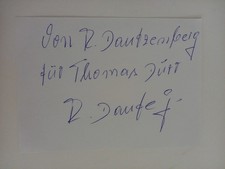 Von R. Dautzenberg
für Thomas Dürr
R. Daut